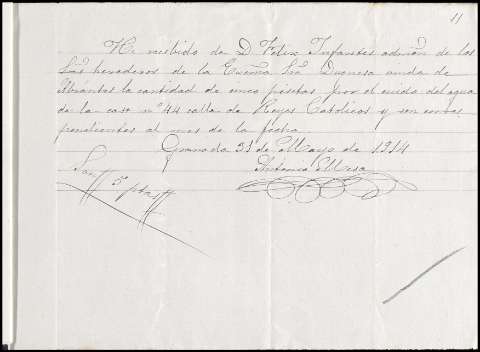 11
He recibido de D. Felix Infantes admon de los
Sres herederos de la Excma Sra Duquesa viuda de
Abrantes la cantidad de cinco pesetas por el cuido del agua
de la casa nº 44 calle de Reyes Catolicos y son
pendientes al mes de la fecha.
Granada 31 de Mayo de 1914
Antonio Mesa
Son 5 ptas